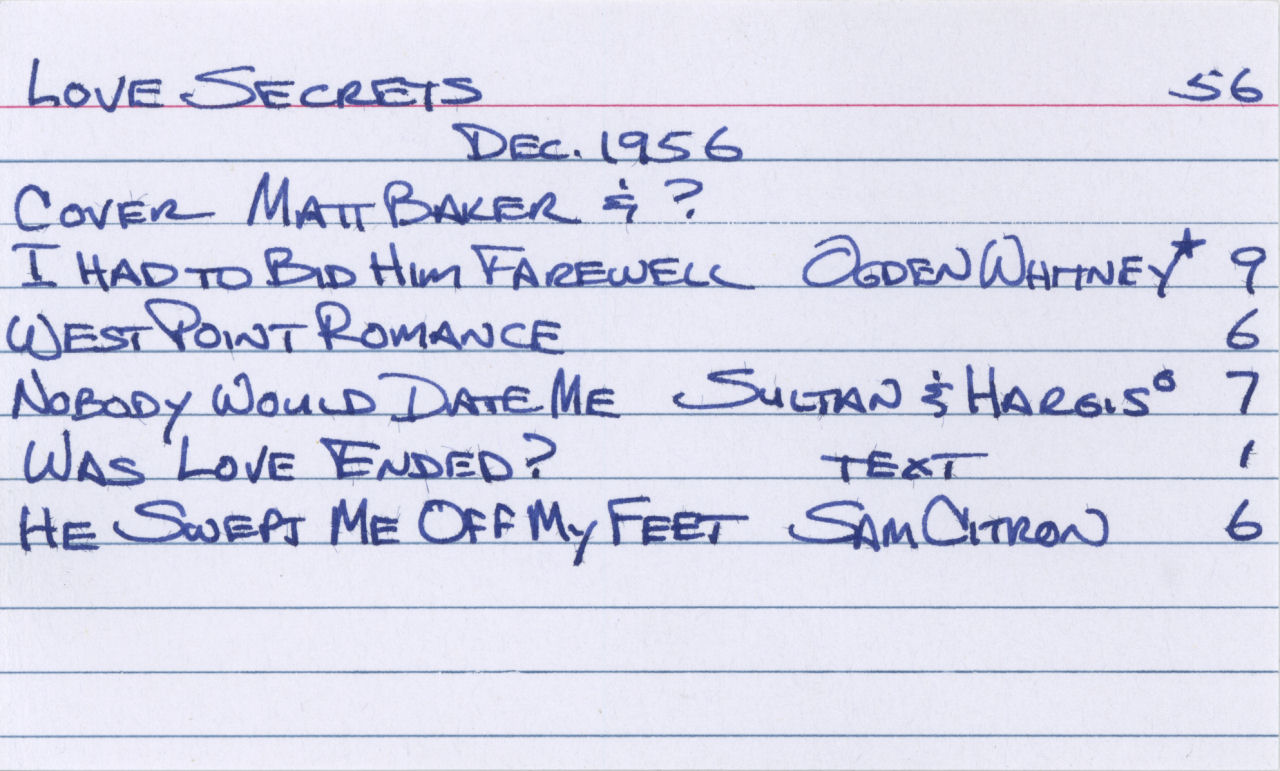 LOVE SECRETS 56
DEC. 1956
COVER MATT BAKER & ?
I HAD TO BID HIM FAREWELL OGDEN WHITNEY★ 9
WEST POINT ROMANCE 6
NOBODY WOULD DATE ME SULTAN & HARGIS° 7
WAS LOVE ENDED? TEXT 1
HE SWEPT ME OFF MY FEET SAM CITRON 6